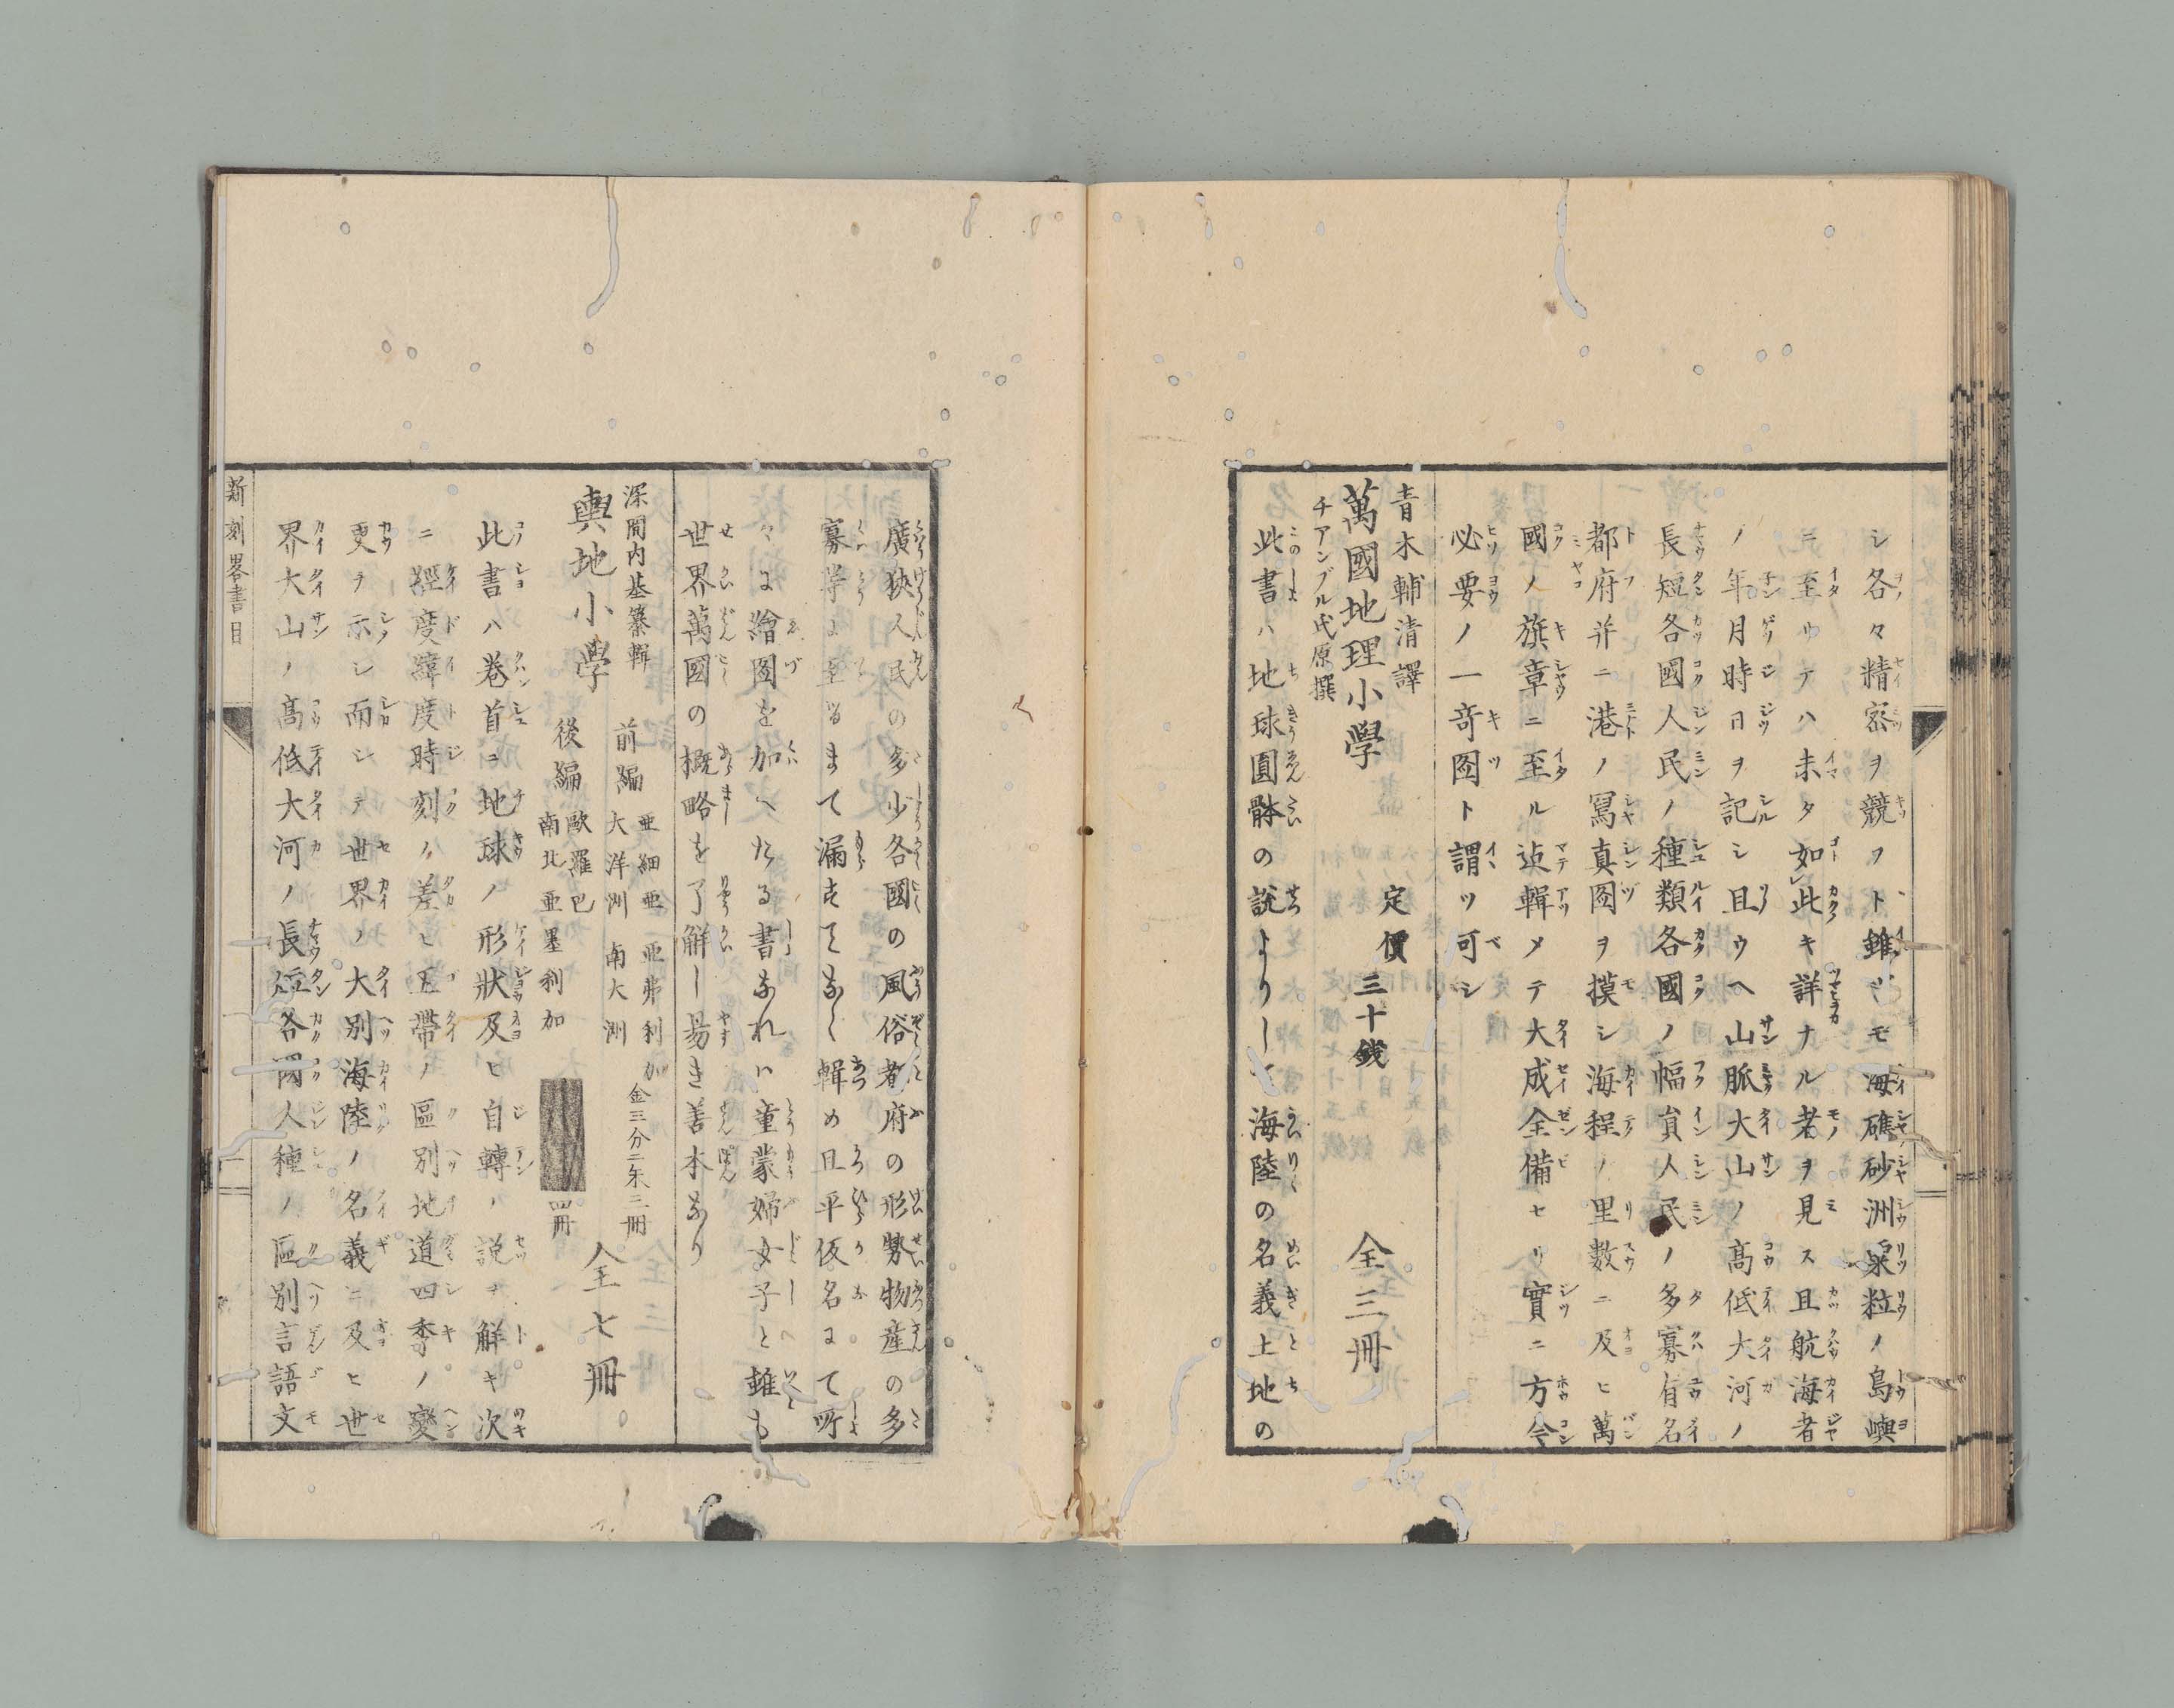 シ各々精密ヲ競フト雖ドモ海礁砂洲粟粒ノ島嶼
ニ至リテハ未タ如此キ詳ナル者ヲ見ス且航海者
ノ年月時日ヲ記シ且ツヘ山脈大山ノ高低大河ノ
長短各國人民ノ種類各國ノ幅員人民ノ多寡有名
都府并ニ港ノ寫真図ヲ摸シ海程ノ里数ニ及ヒ萬
國ノ旗章ニ至ル迠輯メテ大成全備セリ實ニ方今
必要ノ一奇図ト謂ツ可シ
青木輔清譯
萬國地理小學 定價三十銭 全三冊
チアンブル氏原撰
此書ハ地球圓体の説よりして海陸の名義土地の
廣狹人民の多少各國の風俗都府の形勢物産の多
寡等に至るまて漏さす輯め且平仮名にて所
々に繪図を加へたる書なれハ童蒙婦女子と雖も
世界萬國の概略を了解し易き善本なり
深間内基纂輯
輿地小學 全七冊
前編 亜細亜 亜弗利加 大洋洲 南大洲 金三分二朱 三冊
後編 歐羅巴 南北亜墨利加 四冊
此書ハ巻首ニ地球ノ形狀及ヒ自轉ノ説ヲ解キ次
ニ經度緯度時刻ノ差ヒ五帶ノ區別地道四季ノ變
更ヲ示シ而シテ世界ノ大別海陸ノ名義ニ及ヒ世
界大山ノ高低大河ノ長短各國人種ノ区別言語文
新刻畧書目